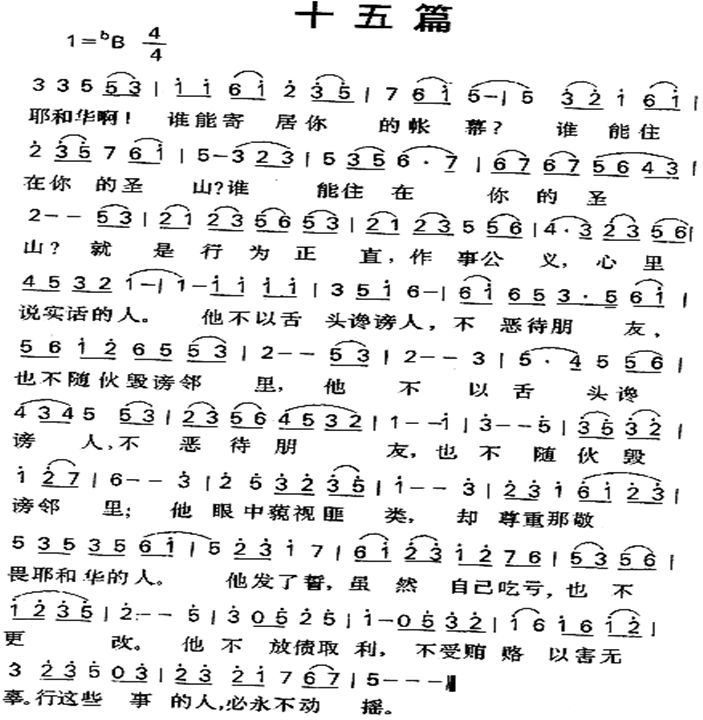 十五篇
1=ᵇB 4/4
3 3 5 5 3 | i i 6 i 2 3 5 | 7 6 i 5 - | 5 3 2 1 6 i |
耶和华啊！谁能寄居你的帐幕？谁能住
2 3 5 7 6 i | 5 - 3 2 3 | 5 3 5 6 · 7 | 6 7 6 7 5 6 4 3 |
在你的圣山?谁能住在你的圣
2 - - 5 3 | 2 1 2 3 5 6 5 3 | 2 1 2 3 5 5 6 | 4 · 3 2 3 5 6 |
山？就是行为正直,作事公义,心里
4 5 3 2 1 - | 1 - i i i i | 3 5 i 6 - | 6 i 6 5 3 · 5 6 i |
说实话的人。他不以舌头谗谤人,不恶待朋友,
5 6 i 2 6 5 5 3 | 2 - - 5 3 | 2 - - 3 | 5 · 4 5 5 6 |
也不随伙毁谤邻里,他不以舌头谗
4 3 4 5 5 3 | 2 3 5 6 4 5 3 2 | 1 - - i | 3 - - 5 | 3 5 3 2 |
谤人,不恶待朋友,也不随伙毁
i 2 7 | 6 - - 3 | 2 5 3 2 3 5 | i - - 3 | 2 3 i 6 i 2 3 |
谤邻里;他眼中藐视匪类,却尊重那敬
5 3 5 3 5 6 i | 5 2 3 1 7 | 6 i 2 3 i 2 7 6 | 5 3 5 6 |
畏耶和华的人。他发了誓,虽然自己吃亏,也不
i 2 3 5 | 2 - - 5 | 3 0 5 2 5 | i - 0 5 3 2 | i 6 i 6 i 2 |
更改。他不放债取利,不受贿赂以害无
3 2 3 5 0 3 | 2 3 2 1 7 6 7 | 5 - - - ‖
辜。行这些事的人,必永不动摇。